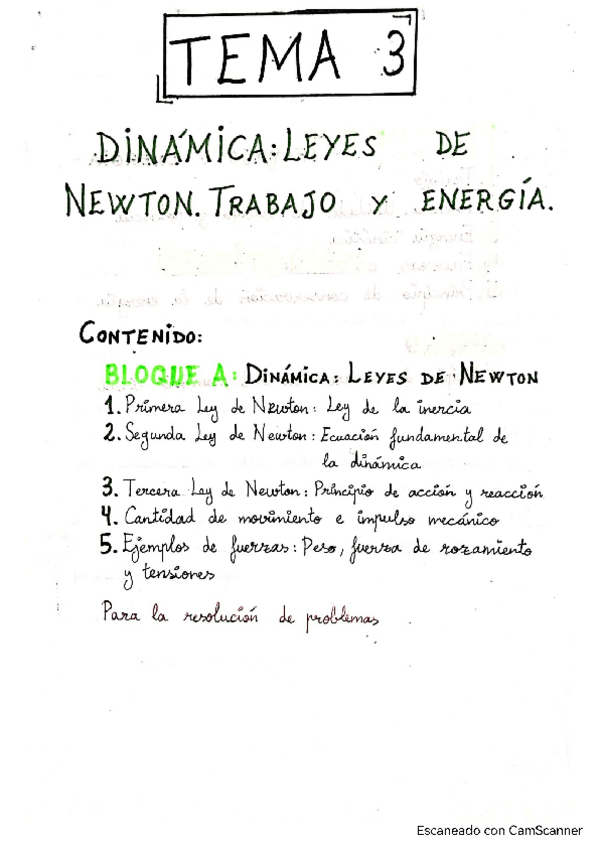 TEMA 3
DINÁMICA: LEYES DE
NEWTON. TRABAJO Y ENERGÍA.
CONTENIDO:
BLOQUE A: DINÁMICA: LEYES DE NEWTON
1. Primera Ley de Newton: Ley de la inercia
2. Segunda Ley de Newton: Ecuación fundamental de
la dinámica
3. Tercera Ley de Newton: Principio de acción y reacción
4. Cantidad de movimiento e impulso mecánico
5. Ejemplos de fuerzas: Peso, fuerza de rozamiento
y tensiones
Para la resolución de problemas
Escaneado con CamScanner